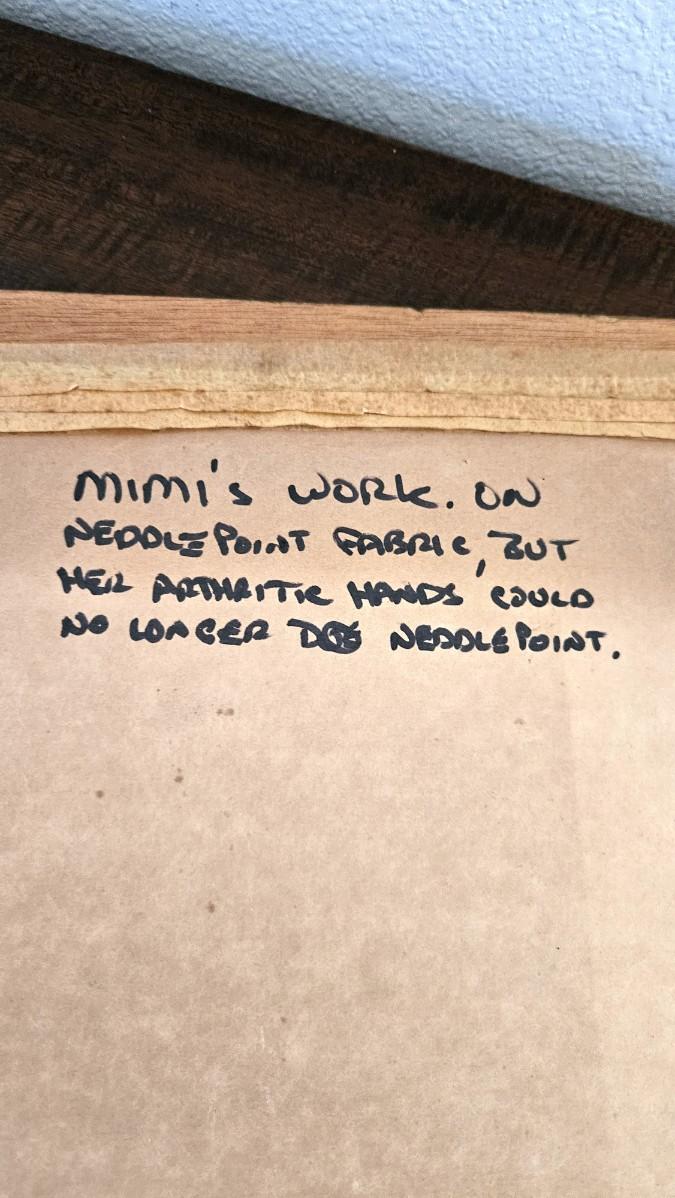 MIMI'S WORK. ON
NEDDLEPOINT FABRIC, BUT
HER ARTHRITIC HANDS COULD
NO LONGER DO NEDDLEPOINT.